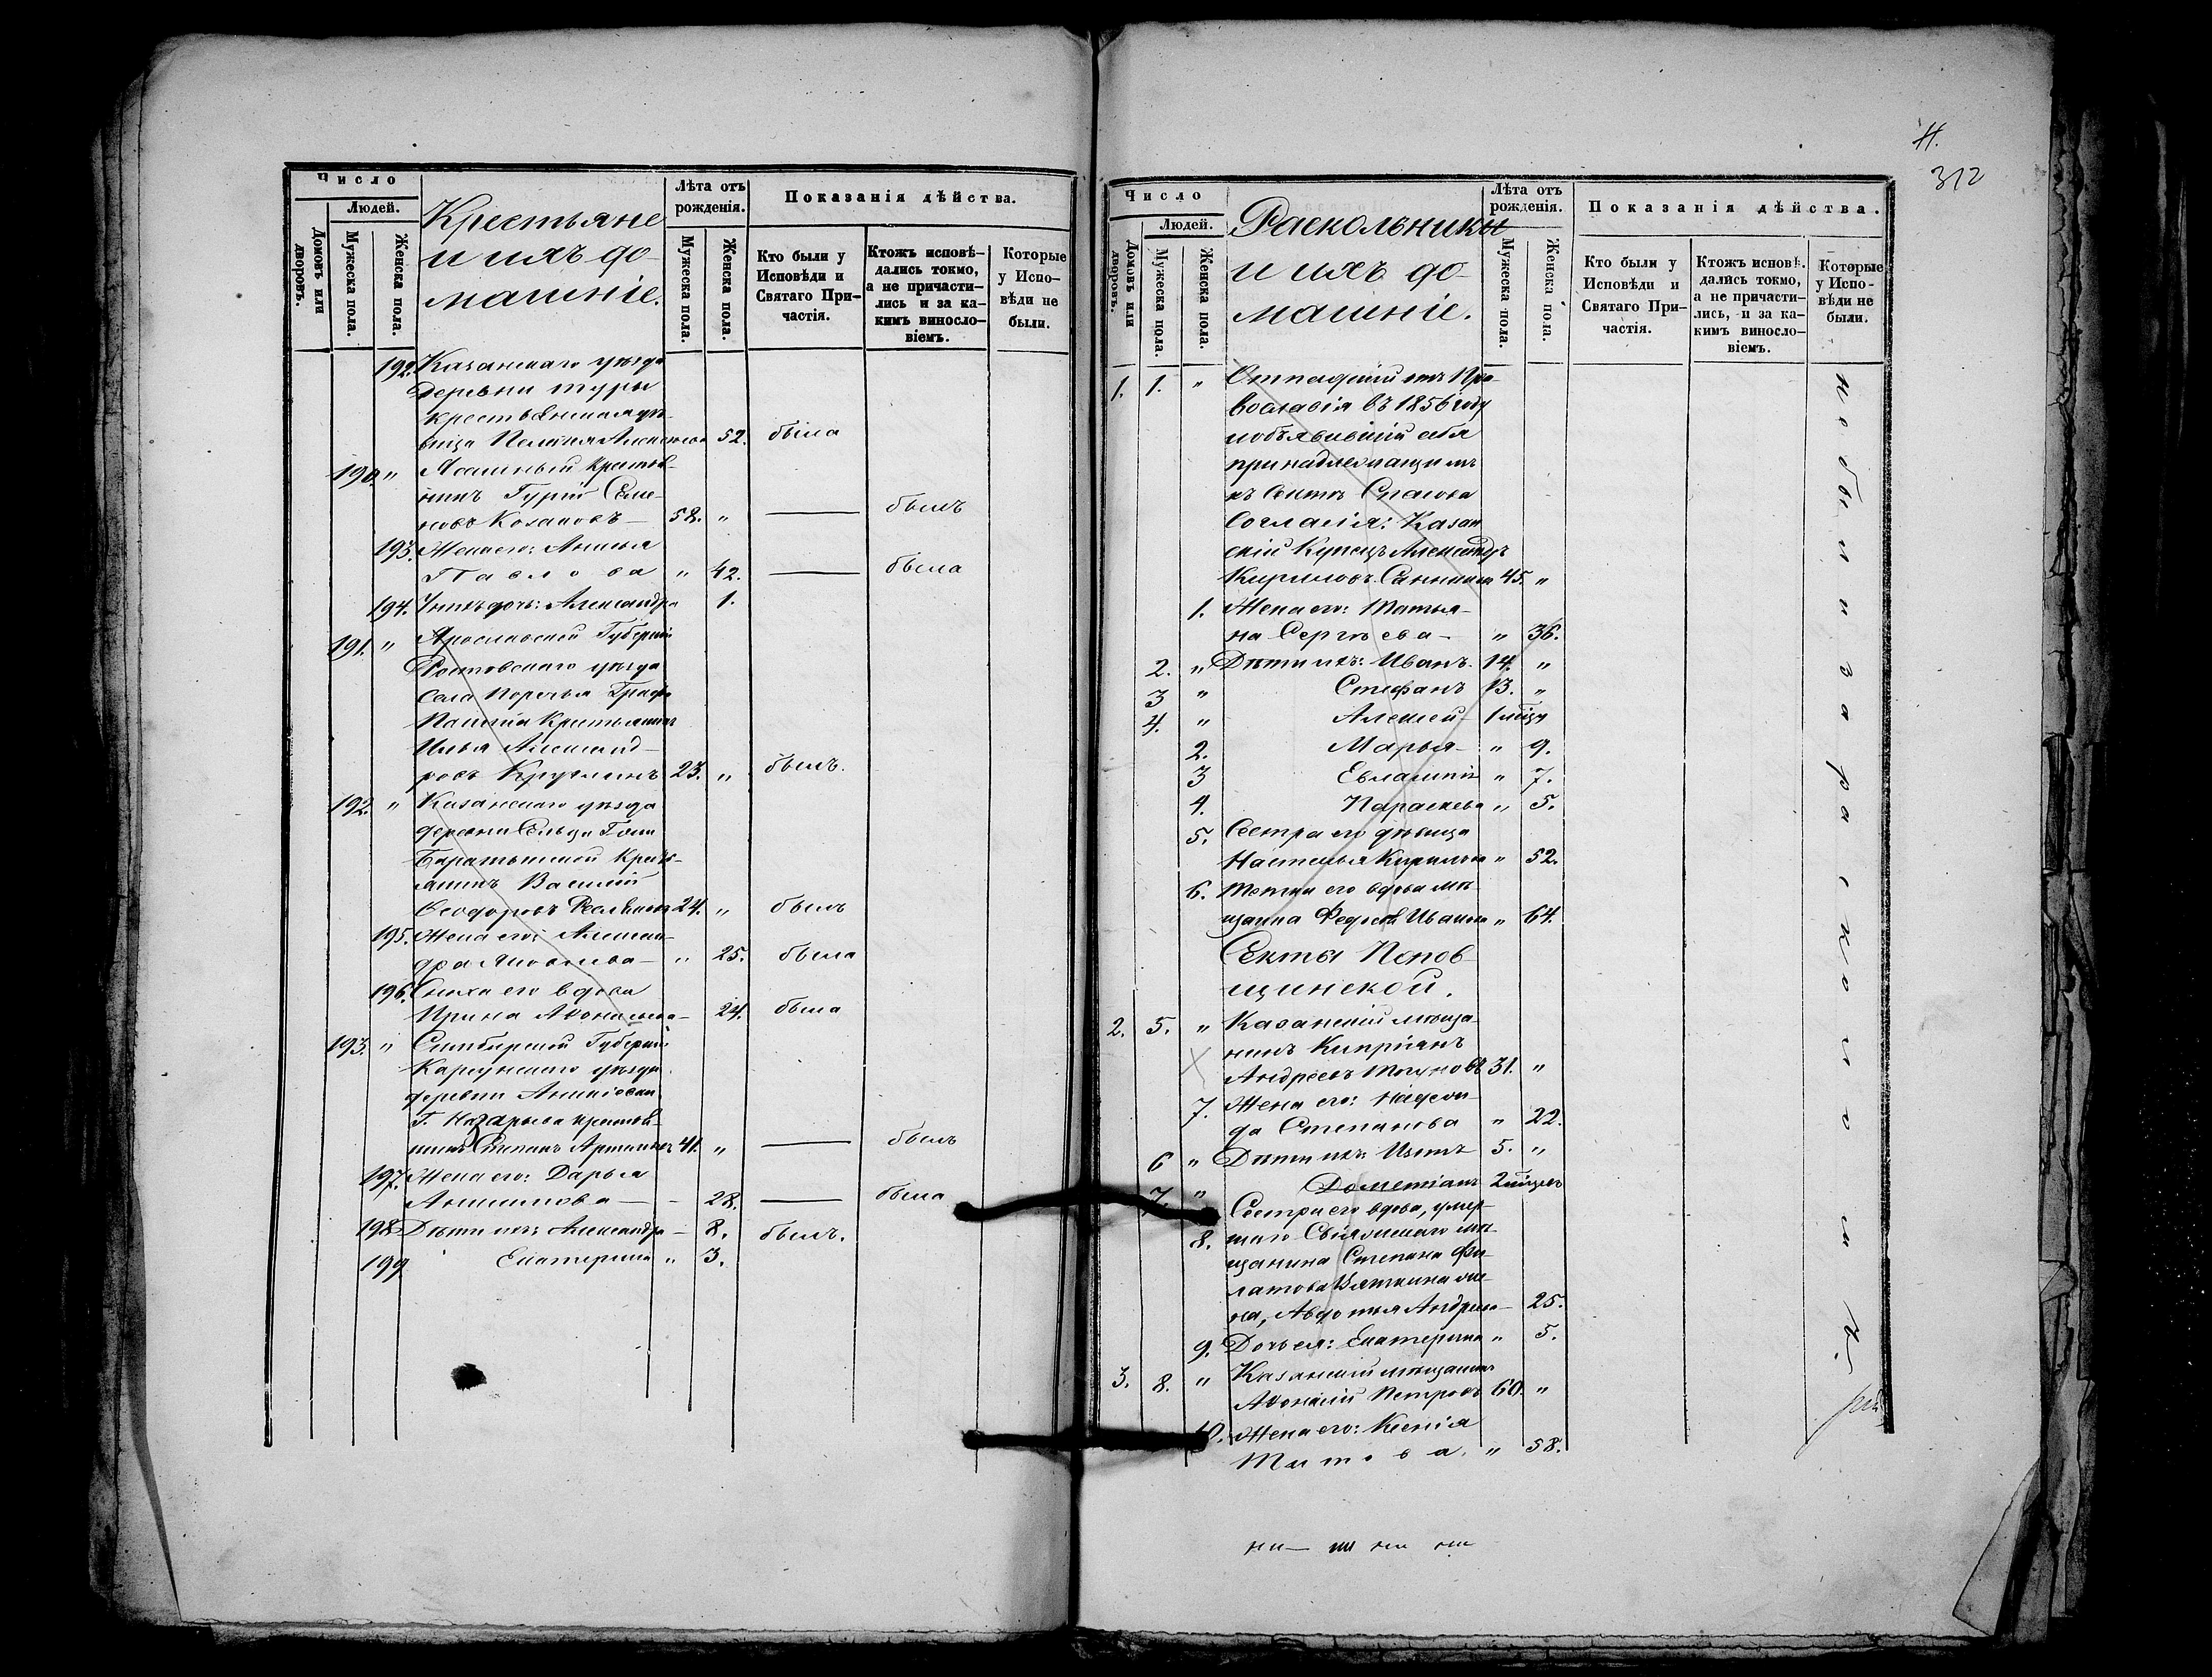 Число
Людей.
Домовъ или дворовъ.
Мужеска пола.
Женска пола.
Крестьяне
и ихъ до-
машніе.
Лѣта отъ рожденія.
Мужеска пола.
Женска пола.
Показанія дѣйства.
Кто были у Исповѣди и Святаго Причастія.
Ктожъ исповѣдались токмо, а не причастились и за какимъ винословіемъ.
Которые у Исповѣди не были.
192. Казанскаго уѣзда
деревни
крестьянская дѣ-
вица Пелагія 52. была
190. " Крестья-
нинъ Гурій Семе-
новъ Козаковъ — 52. " — былъ
193. Жена его: Анисья
Павлова " 42. — была
194. У нихъ дочь: Александра 1.
191. " Ярославской Губерніи
Ростовскаго уѣзда
Села Порѣчья Графа
Панина Крестьянинъ
Илья Александ-
ровъ 23. " былъ.
192. " Казанскаго уѣзда
деревни
Крестья-
нинъ Василій
Ѳеодоровъ 24. " былъ
195. Жена его: Алексан-
дра Яковлева — " 25. была
196. Сноха его вдова
Ирина — 24. была
193. " Симбирской Губерніи
Карсунскаго уѣзда
деревни
Г. Назарьева крестья-
нинъ Степанъ 41. " — былъ
197. Жена его: Дарья
— 28. — была
198. Дѣти ихъ: Александра — 8. былъ.
199. Екатерина " 3.
Н.
312
Число
Людей.
Домовъ или дворовъ.
Мужеска пола.
Женска пола.
Раскольники
и ихъ до-
машніе.
Лѣта отъ рожденія.
Мужеска пола.
Женска пола.
Показанія дѣйства.
Кто были у Исповѣди и Святаго Причастія.
Ктожъ исповѣдались токмо, а не причастились, и за какимъ винословіемъ.
Которые у Исповѣди не были.
1. 1. " Отпадшій отъ Пра-
вославія въ 1856 году
и объявившій себя
принадлежащимъ
къ Сектѣ Спасова
Согласія: Казан-
скій Купецъ Александръ
Кириловъ 45. "
1. Жена его: Татья-
на Сергѣева — " 36.
2. " Дѣти ихъ: Иванъ 14. "
3 " Стефанъ 13. "
4. " Алексей — 1 мѣсяц
2. Марья — " 9.
3 Евлампія " 7.
4. Параскева " 5.
5. Сестра его дѣвица
Настасья Кирилова " 52.
6. Тетка его вдова мѣ-
щанка Иванова " 64.
Секты Попов-
щинской.
2. 5. " Казанскій мѣща-
нинъ Кипріянъ
Андреевъ 31. "
7. Жена его:
Степанова " 22.
6 " Дѣти ихъ: 5. "
7. " Дометіанъ 2 мѣсяц
8. Сестра его вдова, умер-
шаго Свіяжскаго мѣ-
щанина Степана Фи-
латова Вяткина же-
на, Авдотья Андреева — 25.
9. Дочь ея: Екатерина " 5.
3. 8. " Казанскій мѣщанинъ
Аѳонасій Петровъ 60. "
10. Жена его: Ксенія
Титова. " 58.
не были за расколомъ